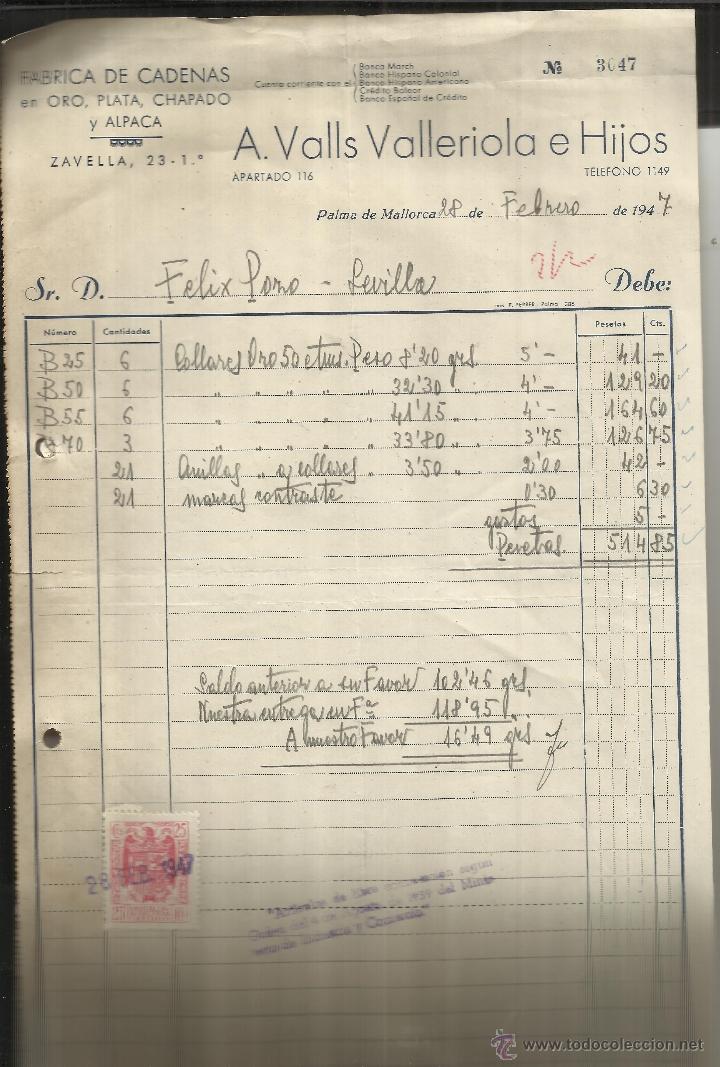 FABRICA DE CADENAS
en ORO, PLATA, CHAPADO
y ALPACA
ZAVELLA, 23-1.º
Cuenta corriente con el
Banca March
Banco Hispano Colonial
Banco Hispano Americano
Crédito Balear
Banco Español de Crédito
Nº 3047
A. Valls Valleriola e Hijos
APARTADO 116
TELEFONO 1149
Palma de Mallorca 28 de Febrero de 1947
Sr. D. Felix Pozo - Sevilla Debe:
Número Cantidades Pesetas Cts.
B 25 6 Collares Oro 50 ctms. Peso 8'20 grs. 5'- 41 -
B 50 6 " " " " 32'30 " 4'- 129 20
B 55 6 " " " " 41'15 " 4'- 164 60
B 70 3 " " " " 33'80 " " 3'75 126 75
21 Anillas " a collares " 3'50 " 2'00 42 -
21 marcas contraste 0'30 6 30
gastos 5 -
Pesetas. 514 85
Saldo anterior a su Favor 102'46 grs,
Nuestra entrega en Fª 118'95 "
A nuestro Favor 16'49 grs
25 25
28 FEB. 1947
"Artículos de libre según
Orden del de 1939 del Minis-
terio de Industria y Comercio"
www.todocoleccion.net